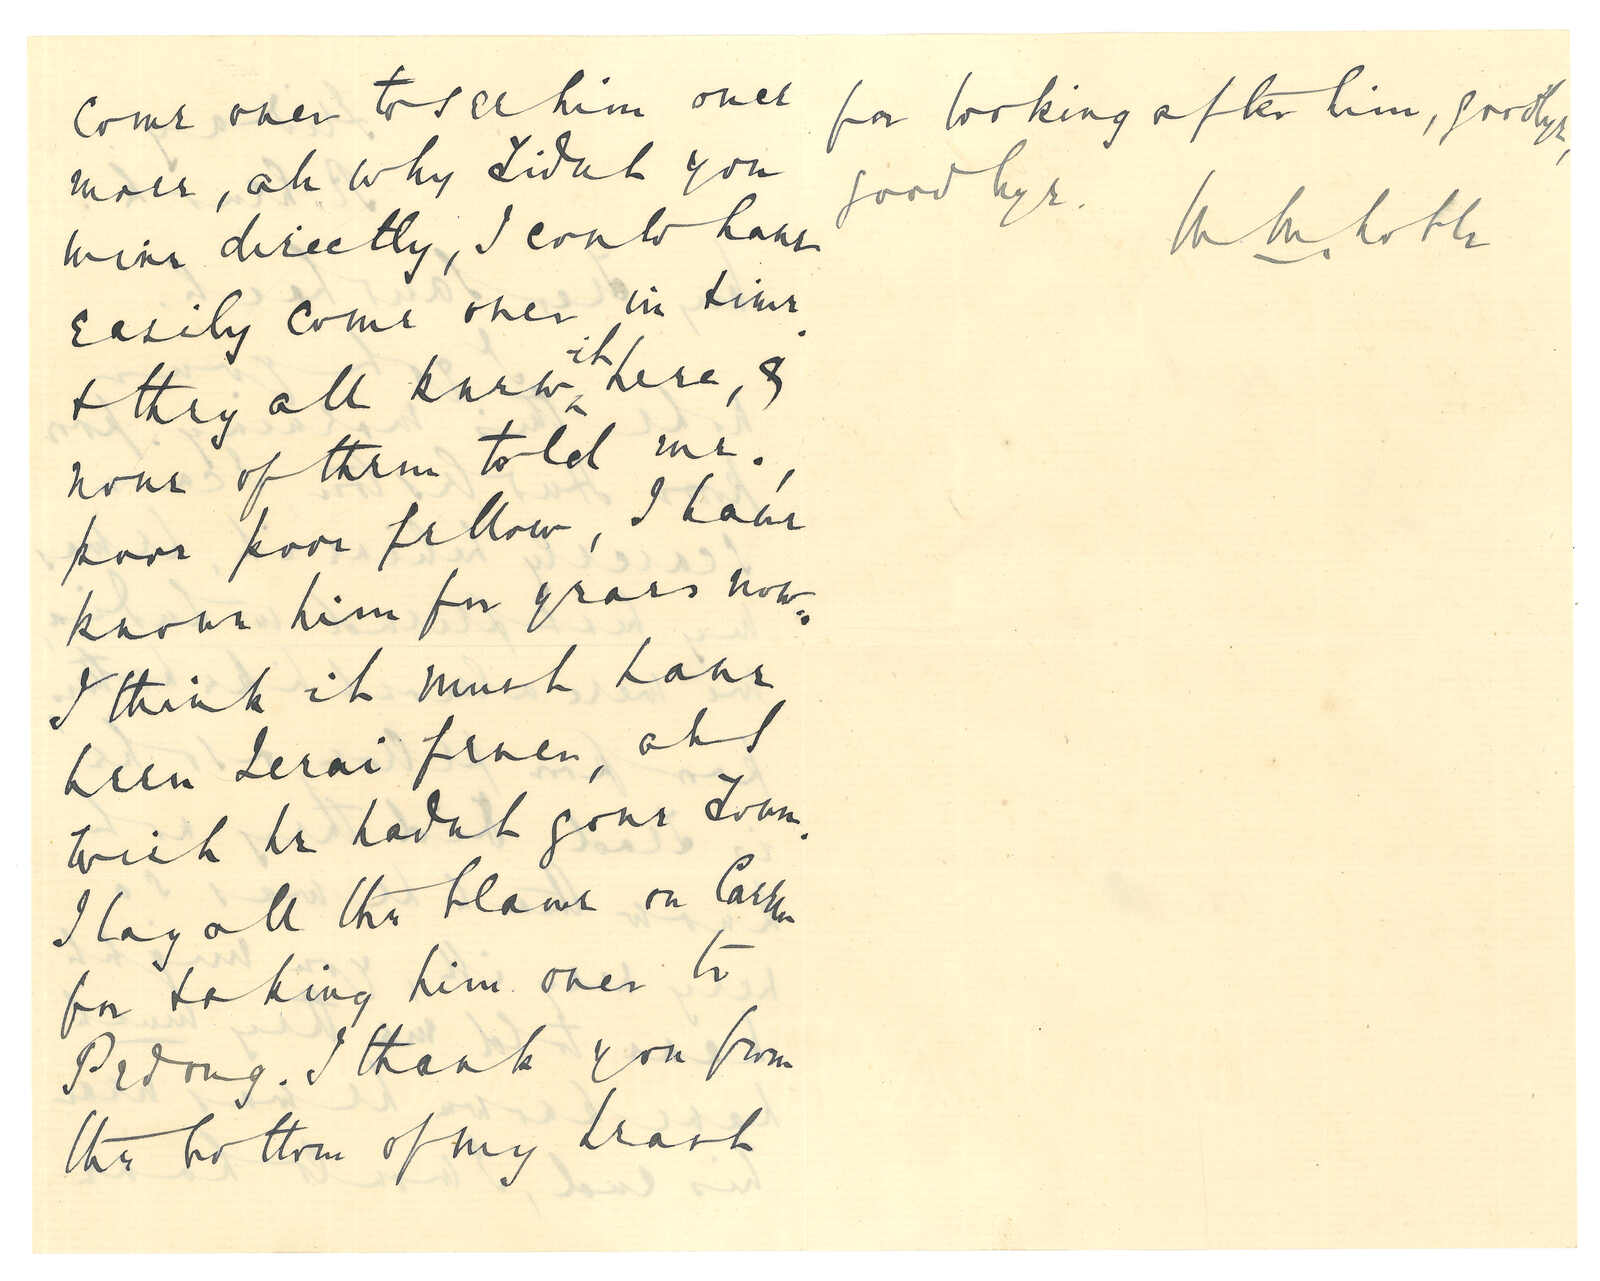 come over to see him once
more, ah why didnt you
wire directly, I could have
easily come over in time.
& they all knew it here, &
none of them told me.,
poor poor fellow, I have
known him for years now.
I think it must have
been Terai fever, ah I
wish he hadnt gone down.
I lay all the blame on
for taking him over to
Pedong. I thank you from
the bottom of my heart
for looking after him, goodbye,
goodbye.
M M. Noble